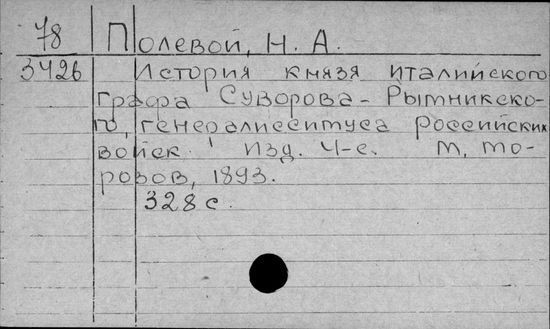 78 Полевой, Н. А.
3426 История князя италийского
графа Суворова-Рымникско-
го, генералиссимуса российских
войск. Изд. 4-е. М, Мо-
розов, 1893.
328 с.